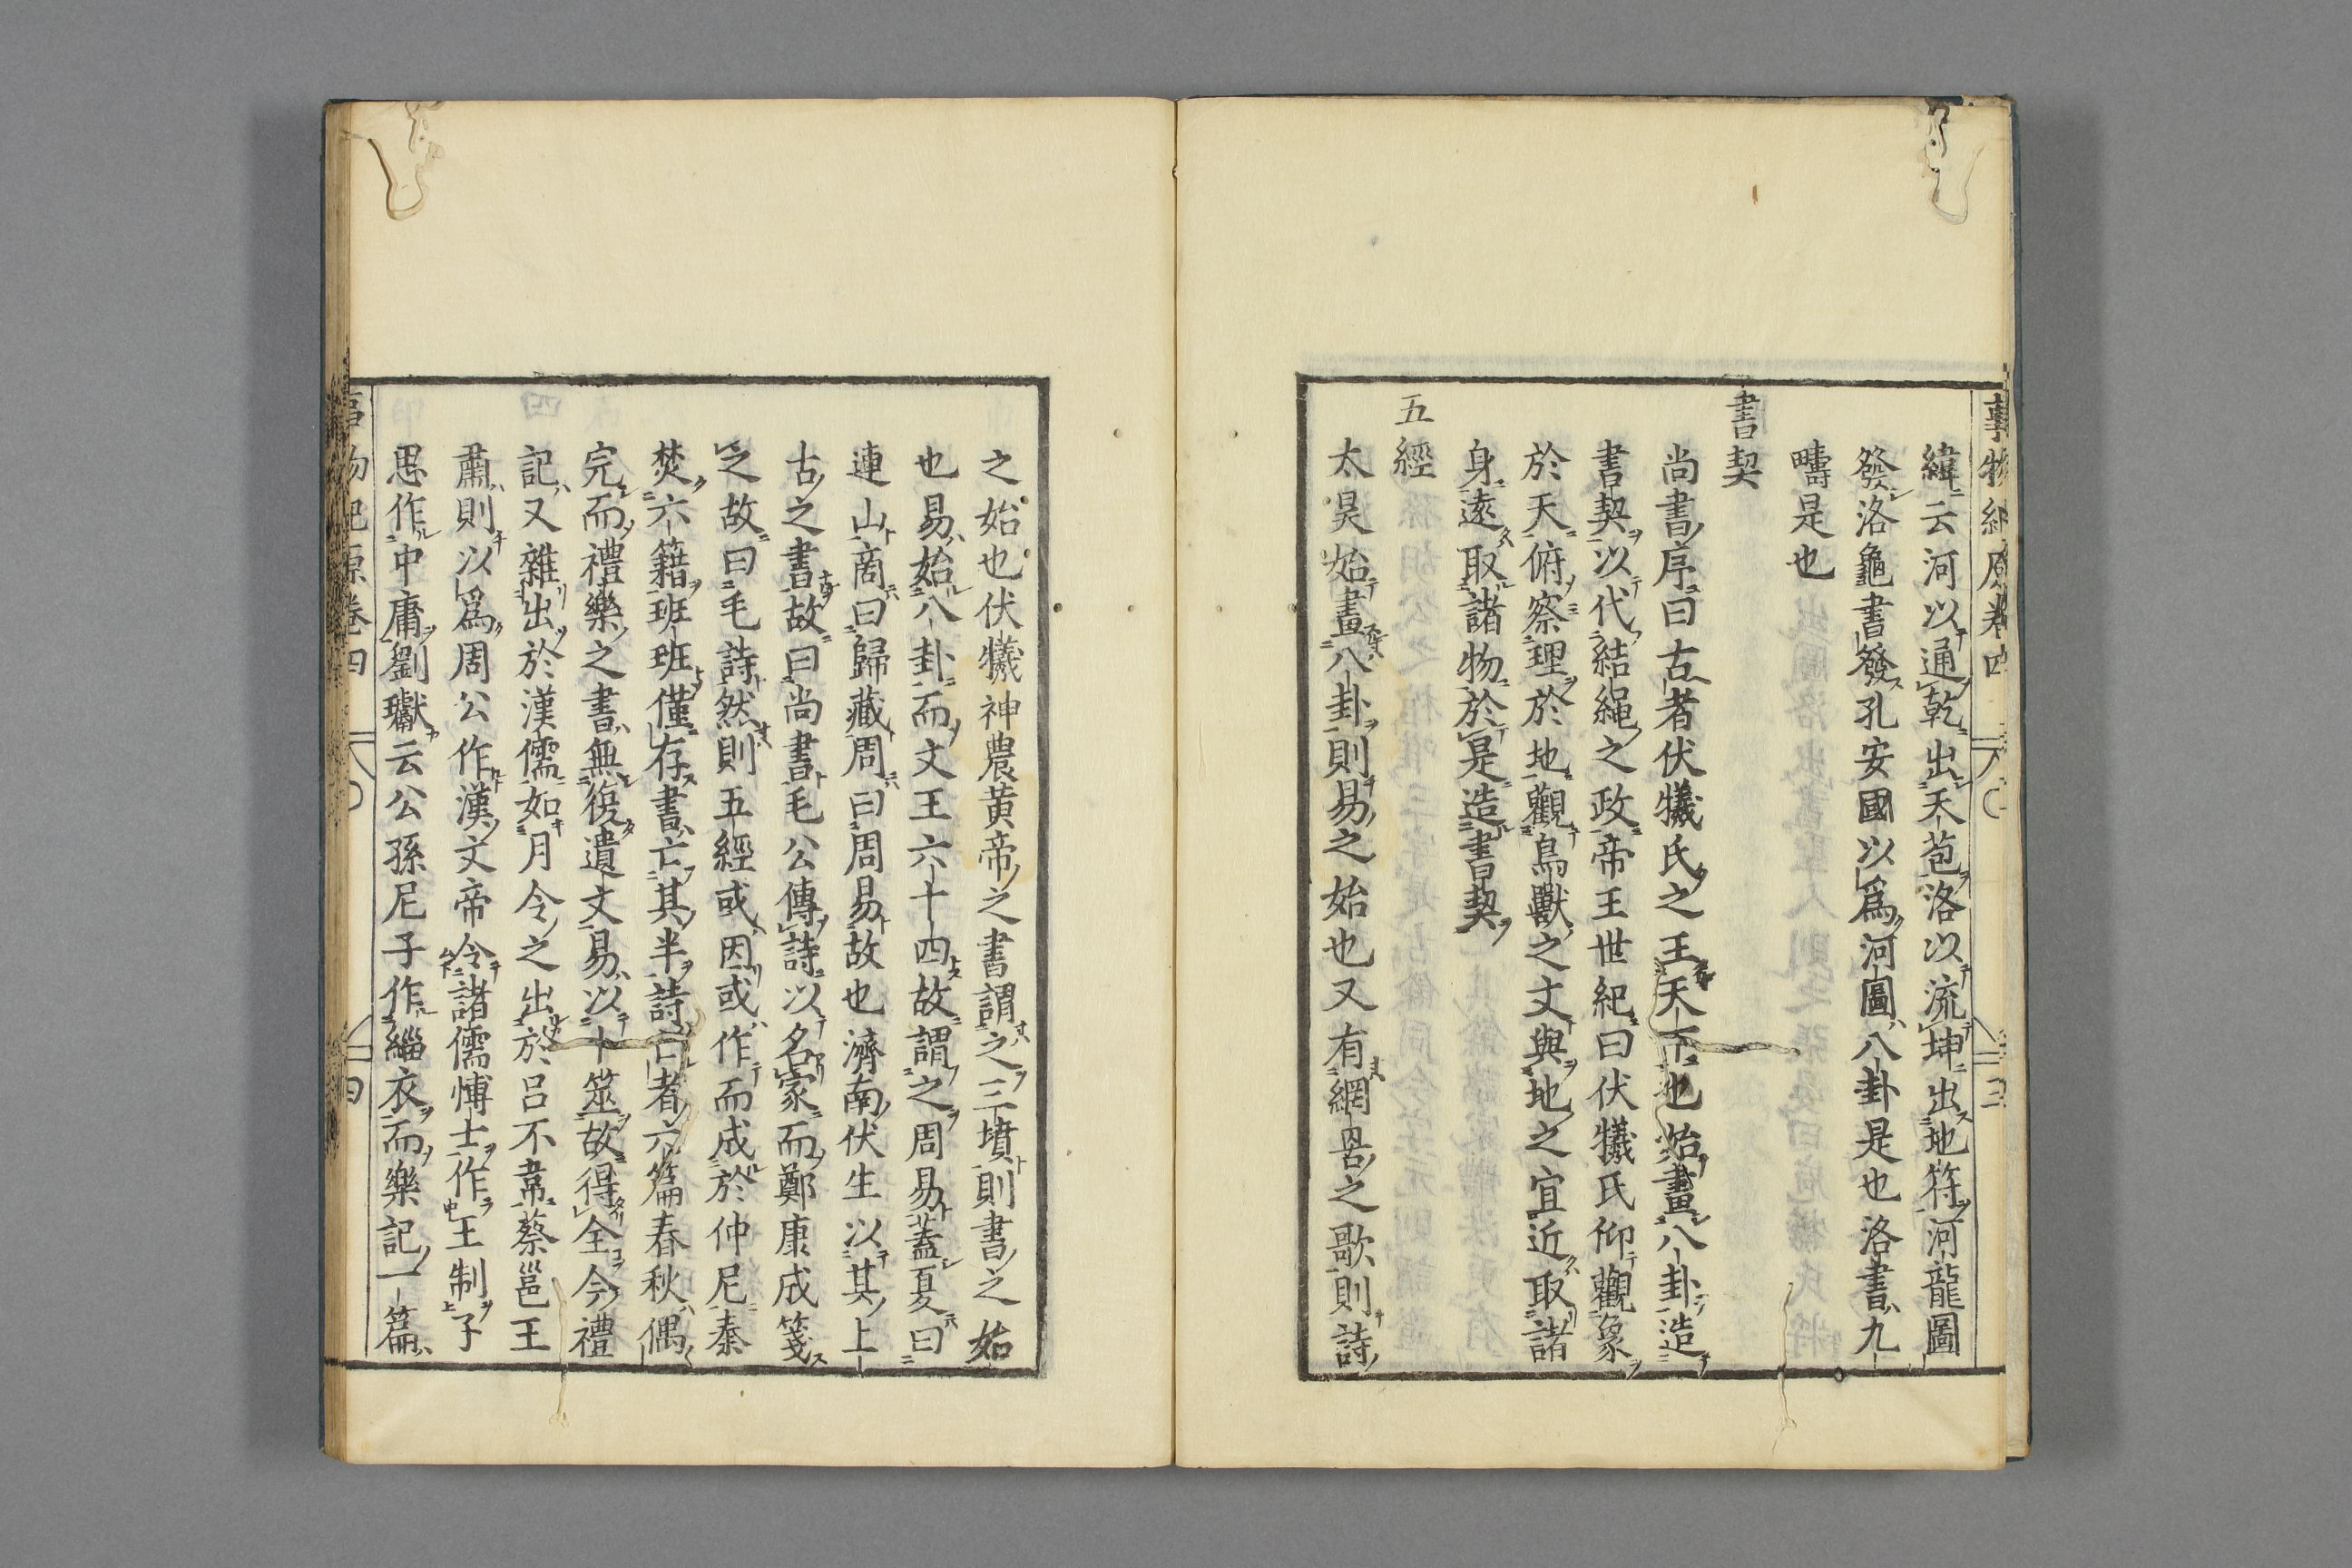 事物紀原卷四
緯云河以通乾出天苞洛以流坤出地符河龍圖
發洛龜書發孔安國以爲河圖八卦是也洛書九
疇是也
書契
尚書序曰古者伏犧氏之王天下也始畫八卦造
書契以代結繩之政帝王世紀曰伏犧氏仰觀象
於天俯察理於地觀鳥獸之文與地之宜近取諸
身遠取諸物於是造書契
五經
太昊始畫八卦則易之始也又有網罟之歌則詩
之始也伏犧神農黃帝之書謂之三墳則書之始
也易始八卦而文王六十四故謂之周易蓋夏曰
連山商曰歸藏周曰周易故也濟南伏生以其上
古之書故曰尚書毛公傳詩以名家而鄭康成箋
之故曰毛詩然則五經或因或作而成於仲尼秦
焚六籍班班僅存書亡其半詩亡者六篇春秋偶
完而禮樂之書無復遺文易以卜筮故得全今禮
記又雜出於漢儒如月令之出於呂不韋蔡邕王
肅則以爲周公作漢文帝令諸儒愽士作王制子
思作中庸劉瓛云公孫尼子作緇衣而樂記一篇
事物紀原卷四